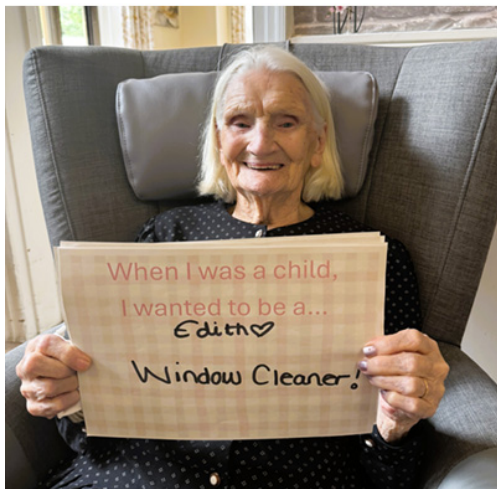 When I was a child,
I wanted to be a...
Edith♡
Window Cleaner!